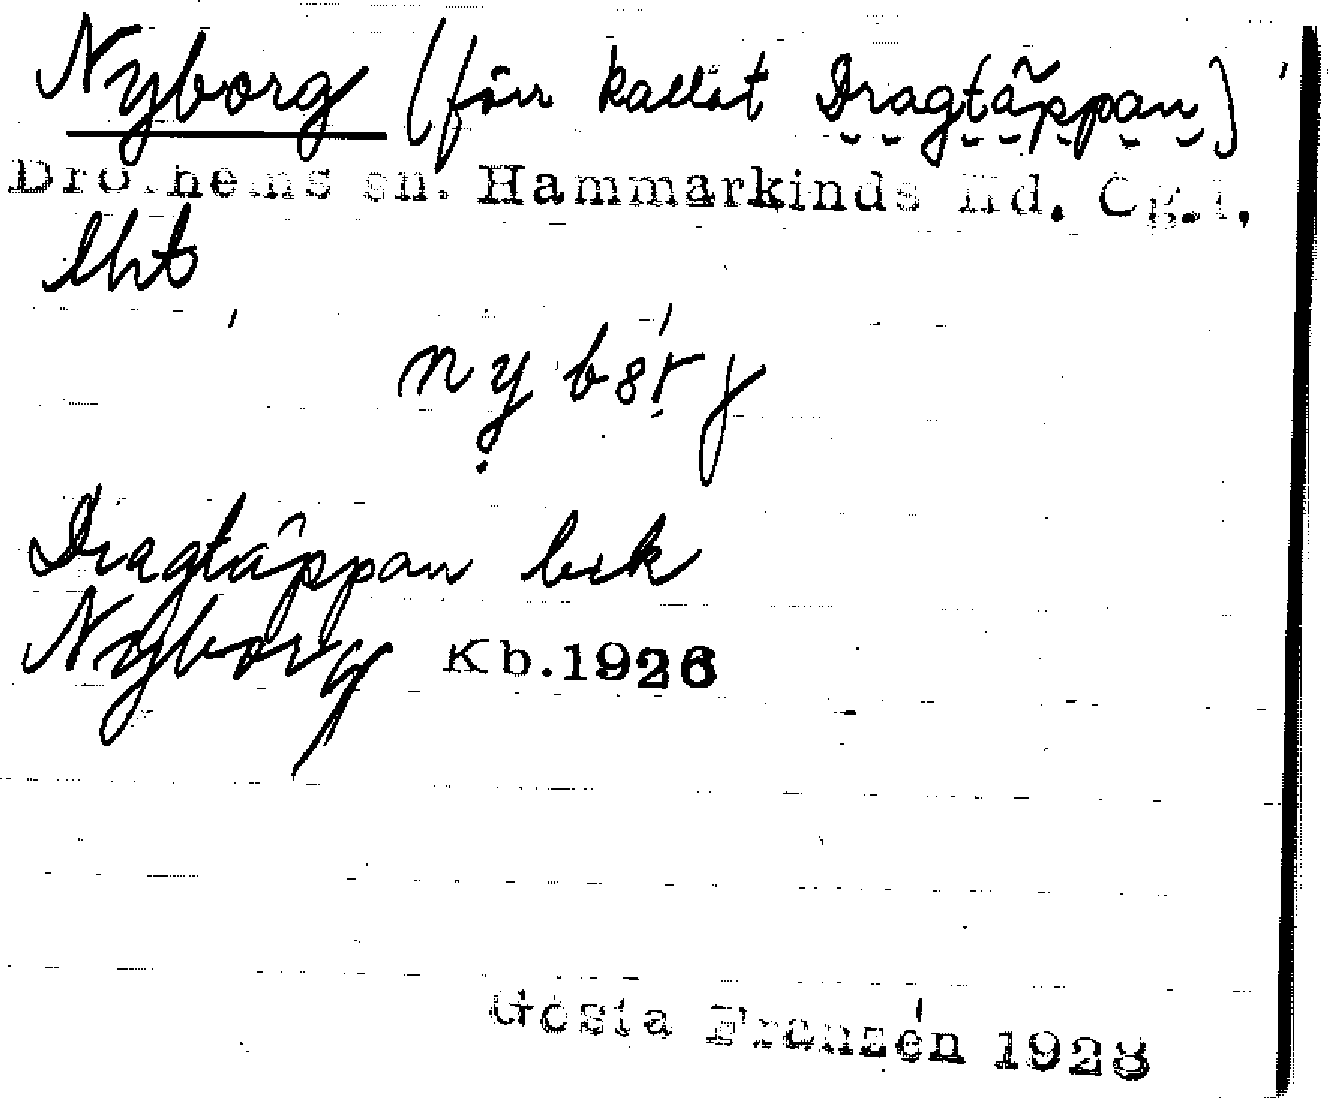 Nyborg (förr kallat Dragtäppan)
Drothems sn. Hammarkinds hd. Ög.l.
lht
Dragtäppan bek
Nyborg Kb.1926
Gösta Franzén 1928